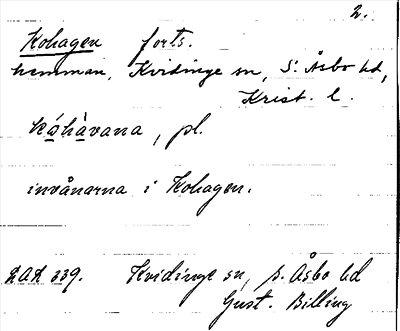 2.
Kohagen forts.
hemman, Kvidinge sn, S. Åsbo hd,
Krist. l.
kóhàvana, pl.
invånarna i Kohagen.
LAL 339. Kvidinge sn, S. Åsbo hd
Gust. Billing